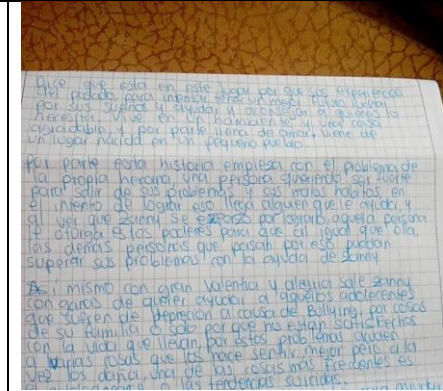 Dice que esta en este lugar por que sus experiencias
del pasado para intentar tener un mejor futuro luchar
por sus sueños y ayudar y aconsejar a quienes lo
necesiten. Vive en un casa
agradable y por parte llena de amor, viene de
un lugar nacida en un pequeño pueblo.
Por parte esta historia empiesa con el problema de
la propia heroina, una persona queriendo ser fuerte
para salir de sus problemas y sus malos habitos en
el intento de lograr eso llega alguien que le ayuda, y
al ver que zanny se esforzo por lograrlo, aquella persona
le otorga estos poderes para que al igual que ella,
las demas personas que pasan por eso puedan
superar sus problemas con la ayuda de zanny
Asi mismo con gran valentia y alegria sale zanny
con ganas de querer ayudar a aquellos adolecentes
que sufren de depresion a causa de Bullying, por cosas
de su familia o solo por que no estan satisfechos
con la vida que llevan, por estos problemas acuden
a varias cosas que los hace sentir mejor pero a la
vez los daña, una de las cosas mas frecuentes es
las tendencias suicidas